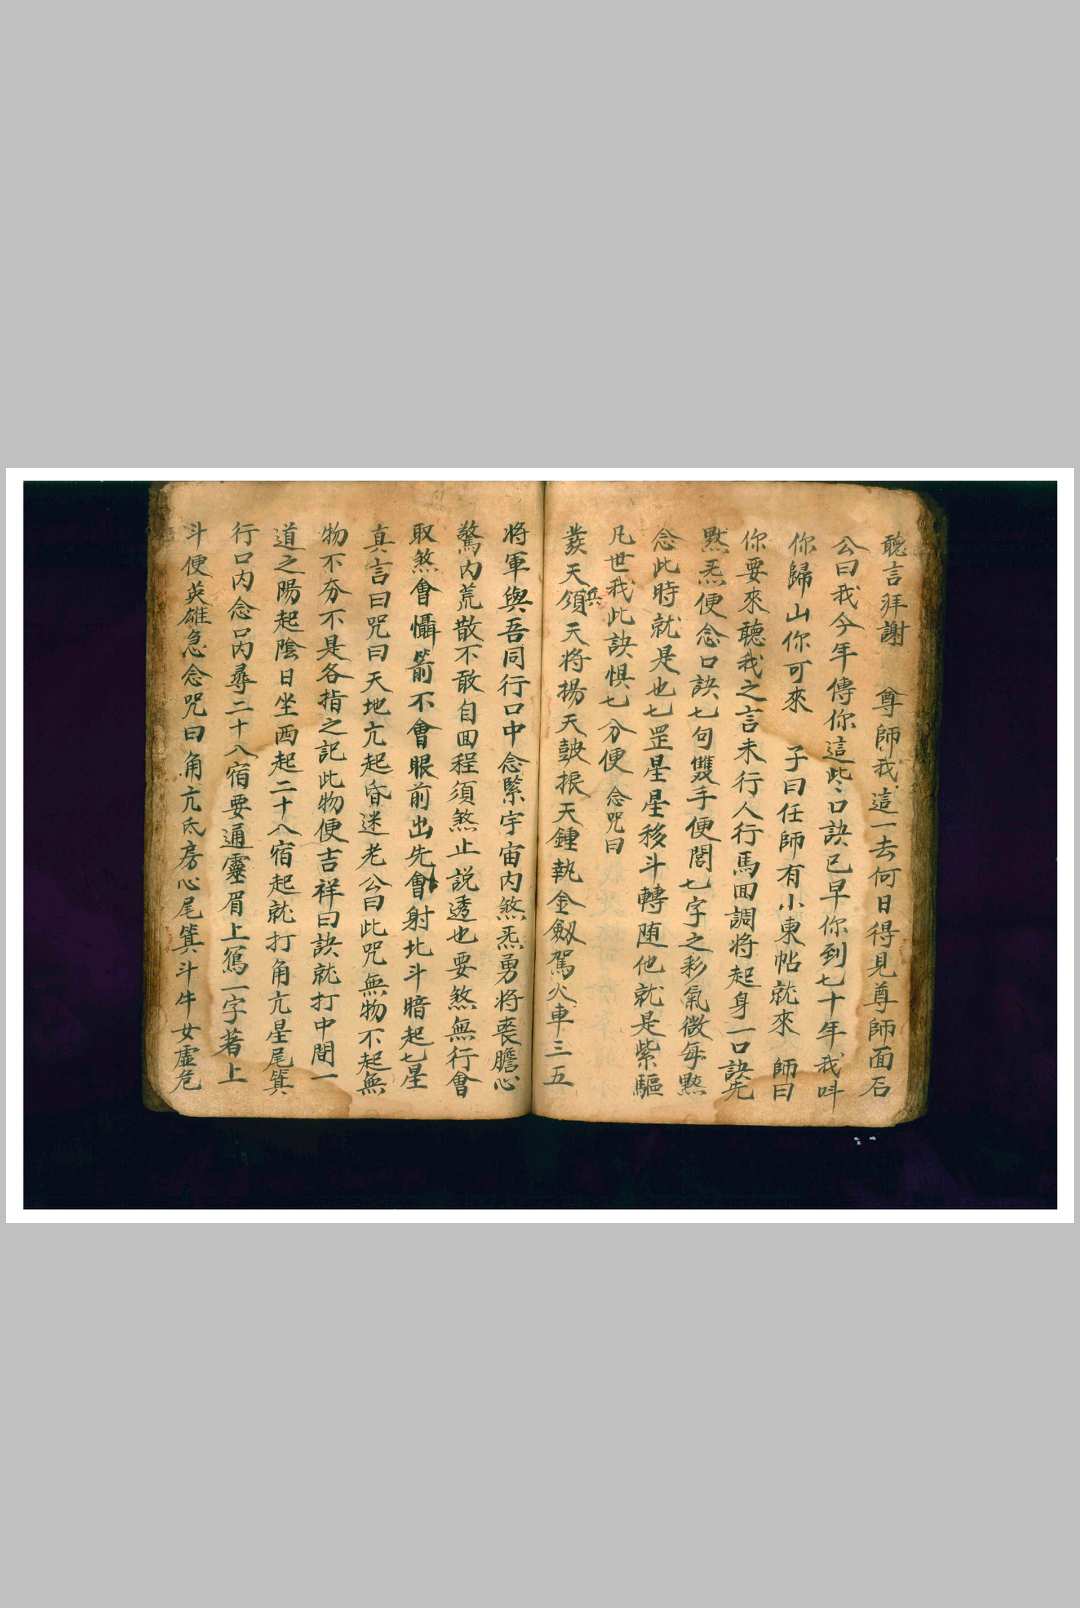 聽言拜謝 尊師我這一去何日得見尊師面石
公曰我今年傳你這些口訣已早你到七十年我呌
你歸山你可來 子曰任師有小東帖就來 師曰
你要來聽我之言未行人行馬回調將起身一口訣先
㸃炁便念口訣七句雙手便閭七字之彩氣微每㸃
念此時就是也七罡星星移斗轉随他就是紫驅
凡世我此訣惧七分便 念咒曰
蕟天領兵天將揚天皷振天鍾執金劔駕火車三五
將軍與吾同行口中念緊宇宙内煞炁勇將喪膽心
驚内荒散不敢自回程須煞止説透也要煞無行會
取煞會懾箭不會眼前出先會射北斗暗起七星
真言曰咒曰天地亢起昏迷老公曰此咒無物不起無
物不夯不是各指之記此物便吉祥曰訣就打中間一
道之陽起陰日坐西起二十八宿起就打角亢星尾箕
行口内念呂丙尋二十八宿要通靈眉上寫一字著上
斗便英雄急念咒曰角亢氐房心尾箕斗牛女虚危